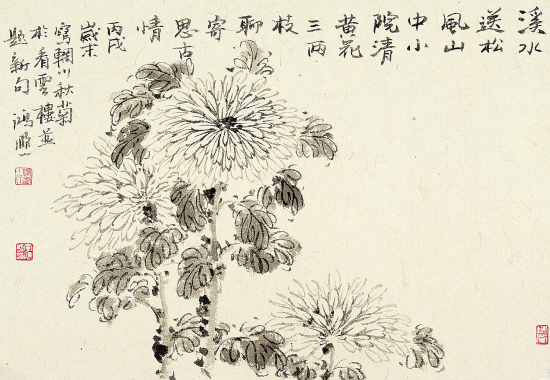 溪水
送松
風山
中小
院清
黄花
三两
枝
聊
寄
思古
情
丙戌
歲末
寫輞川秋菊
於看雲樓並
題新句 鴻